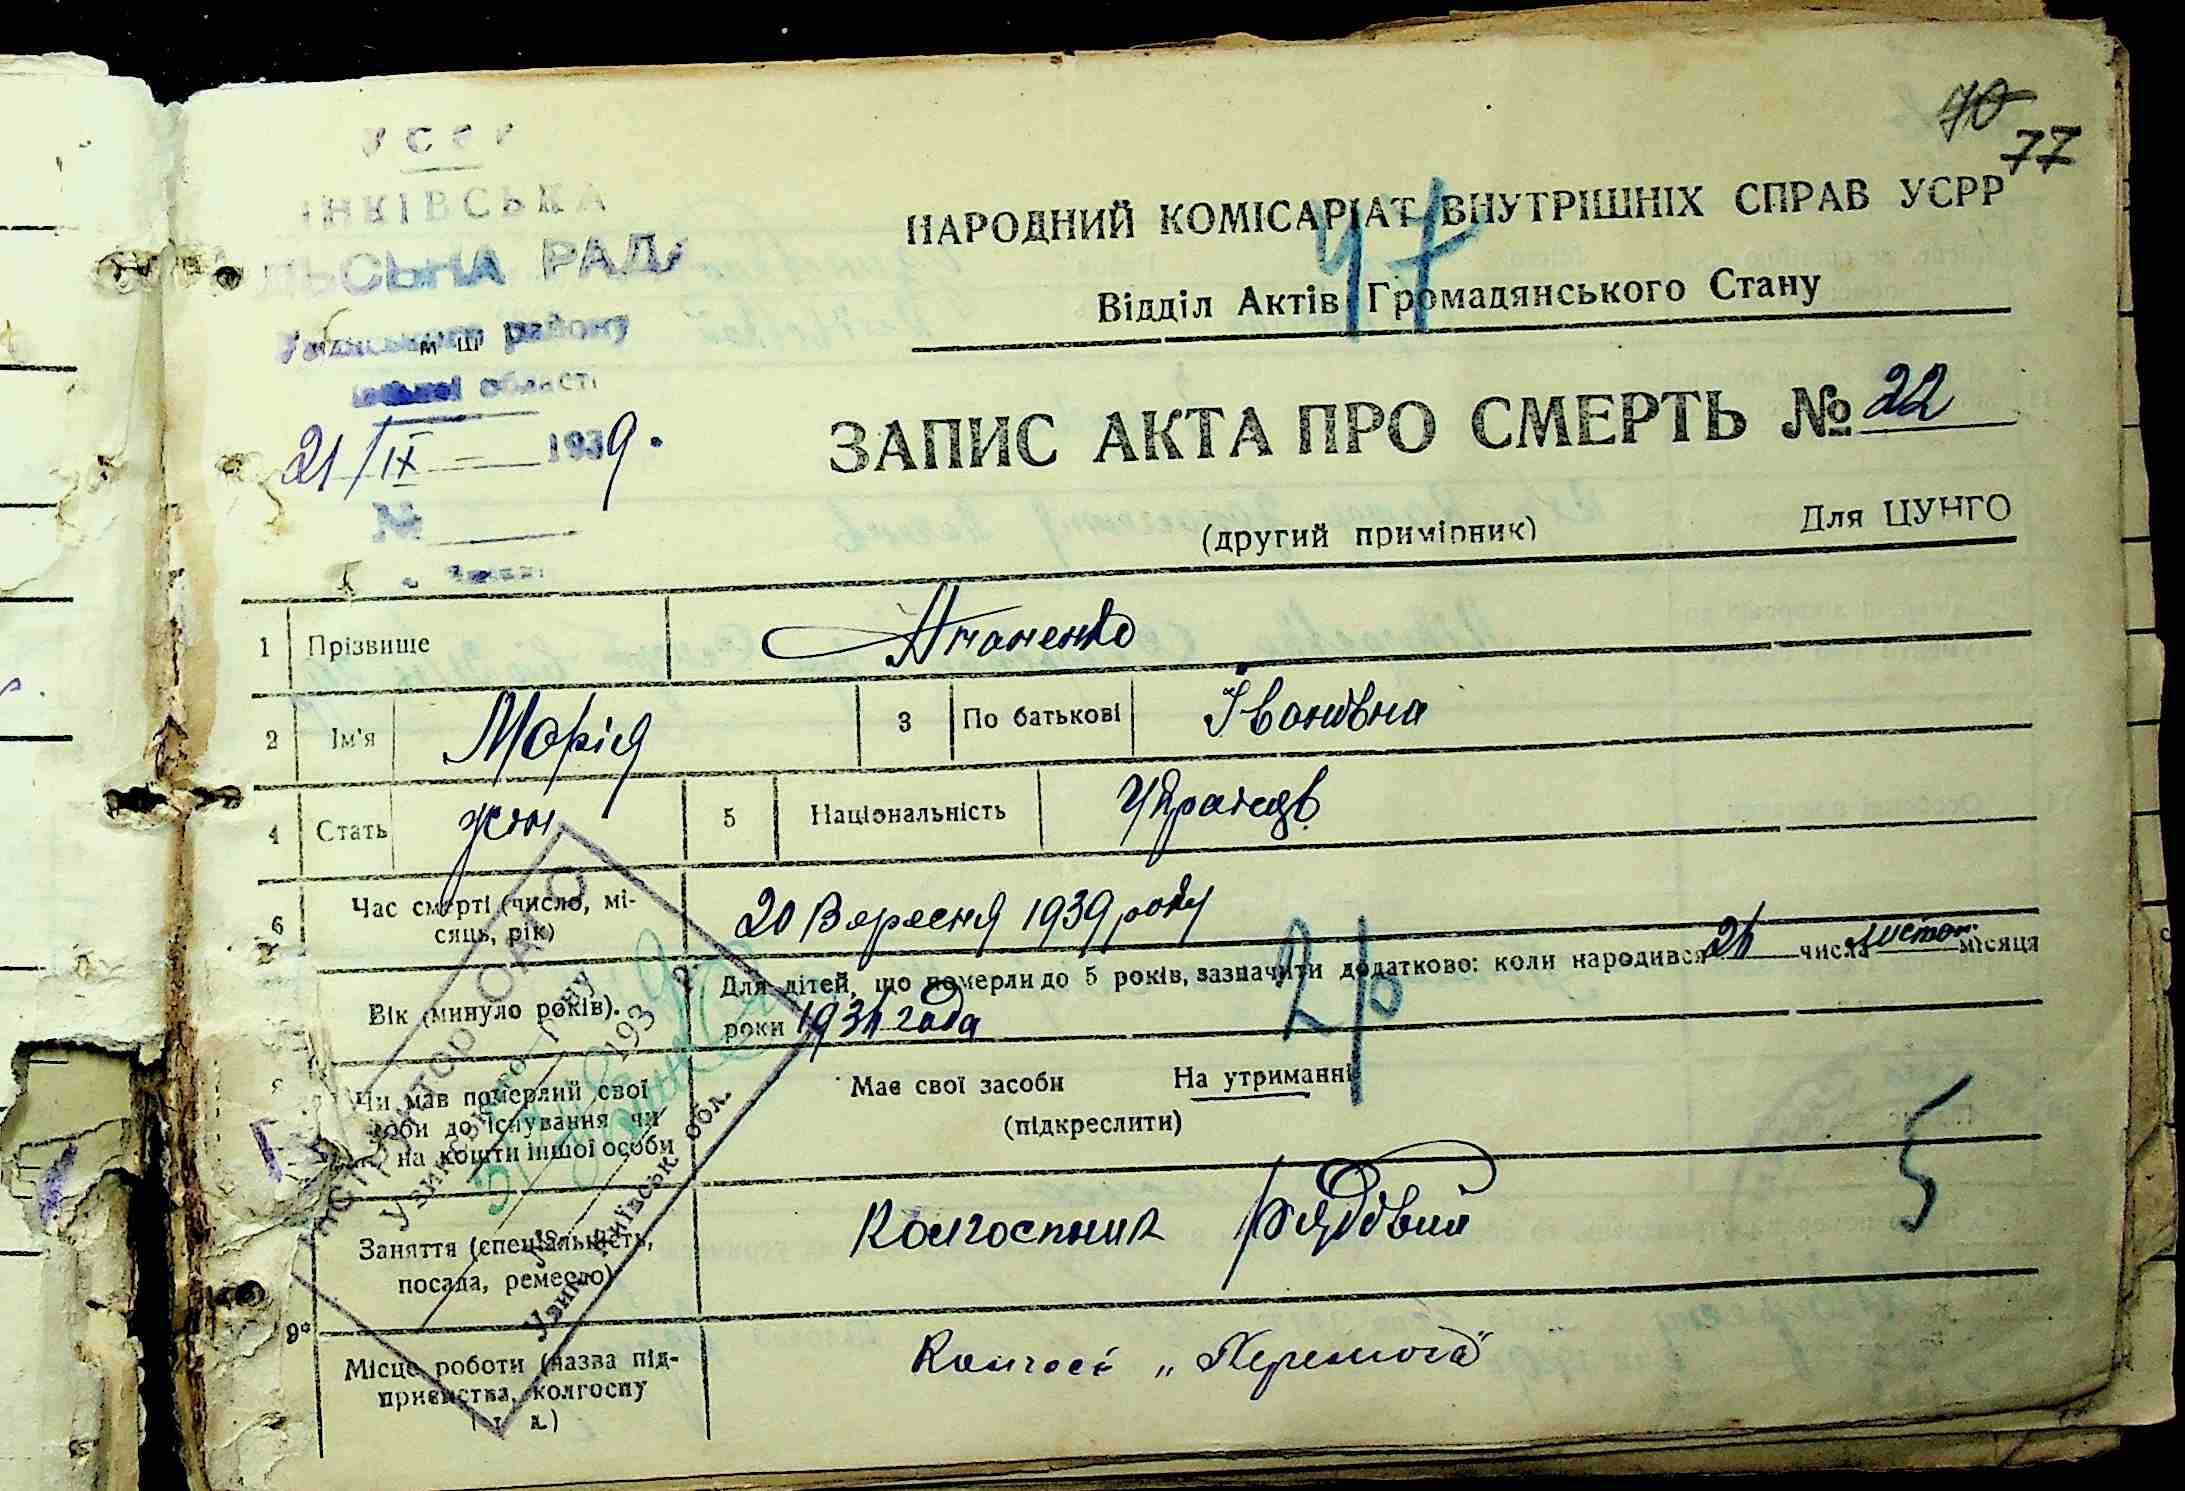 70
77
ІНКІВСЬКА
ЛЬСЬКА РАДА
району
області
21/IX 1939.
№
НАРОДНИЙ КОМІСАРІАТ ВНУТРІШНІХ СПРАВ УСРР
47
Відділ Актів Громадянського Стану
ЗАПИС АКТА ПРО СМЕРТЬ № 22
(другий примірник)
Для ЦУНГО
1 Прізвище
2 Ім'я Марія 3 По батькові Івановна
4 Стать жін 5 Національність
6 Час смерті (число, мі-
сяць, рік)
20 Вересня 1939 року
Вік (минуло років).
Для дітей, що померли до 5 років, зазначити додатково: коли народився числа листоп. місяця
роки года
Чи мав померлий свої
до існування чи
на кошти іншої особи
Має свої засоби На утриманні
(підкреслити)
5
Заняття (спеціальність,
посада, ремесло)
Колгоспник Рядовий
9*
Місце роботи (назва під-
приємства, колгоспу
і т. д.)
Колгосп „Перемога"